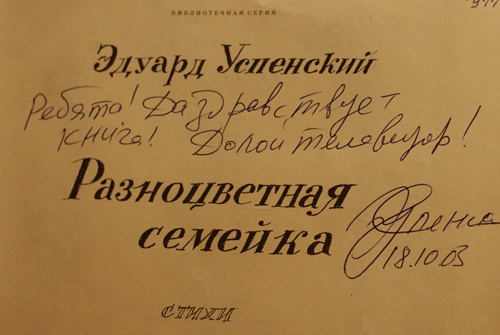 БИБЛИОТЕЧНАЯ СЕРИЯ
Эдуард Успенский
Ребята! Да здравствует
книга! Долой телевизор!
Разноцветная
семейка
18.10.03
СТИХИ